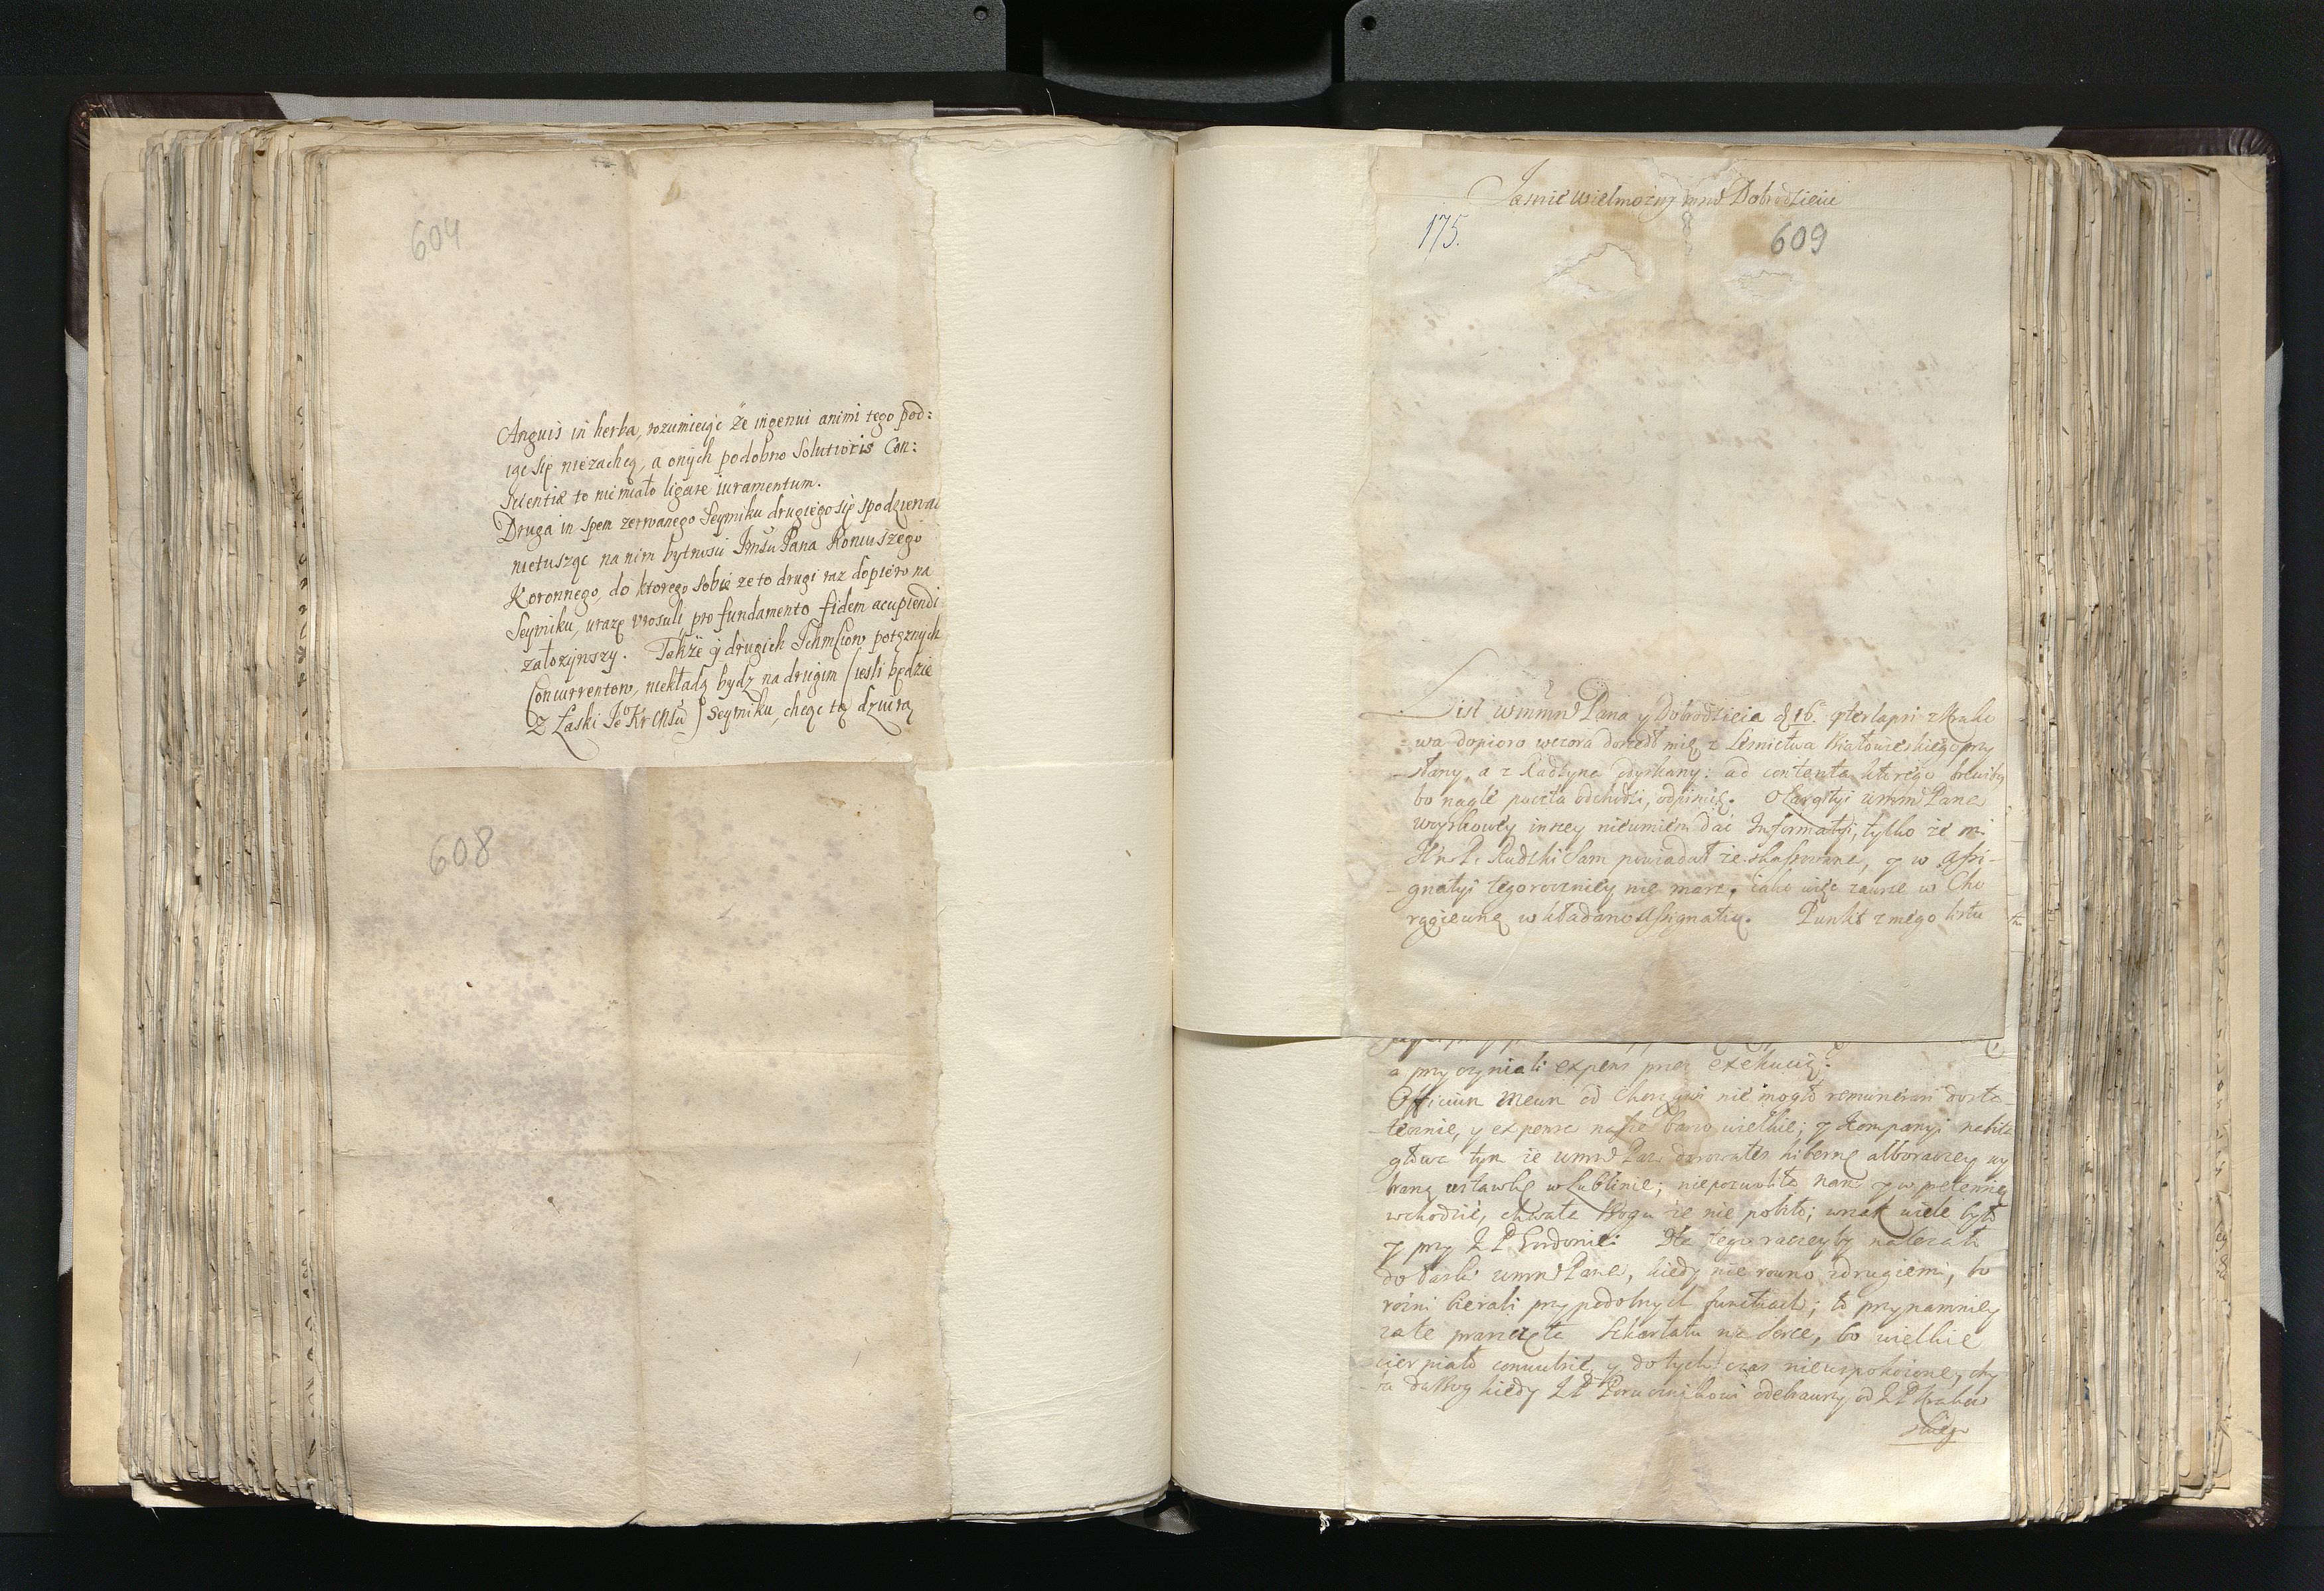 604
Anguis in herba, rozumieiąc że ingenui animi tego pod:
iąc się niezachcą, a onych podobno Solutioris Con:
scientiæ to niemiało ligare iuramentum.
Druga in spem zerwanego Seymiku drugiego się spodziewai
nietusząc na nim bytnosci Jmści Pana Koniuszego
Koronnego, do ktorego sobie ze to drugi raz dopiero na
Seymiku, urazę urosuli pro fundamento fidem accipiendi
założywszy. Także y drugich Ichmściow potężnych
Concurrentow, niekładą bydz na drugim (iesli będzie
z Łaski Jo Kr Mści) Seymiku, chcąc tą dzwierą
608
Jasnie wielmozny mnie Dobrodzieiu
175.
609
List wmmm Pana y Dobrodzieia d 16 z Krako
wa dopioro wczora doszedł mię z Lesnictwa Białowieskiego przy
słany, a z Radzyna odyskany: ad contenta ktorego breviby
bo nagle poczta odchodzi, odpisuię. O Largityi wmm Pana
woyskowey inszey nieumiem dac Informatyi, tylko że mi
Rudzki sam powiadał że skassowane, y w Assi-
gnatyi tegoroczniey nie masz, iako więc zawsze w Cho
rągiewną wkładano Assignatią. Punkt z mego listu
a przyczyniali expens przez exekucią:
Officium meum od Chorągwi nie mogło remunerari dosta-
tecznie, y expensa nasze barzo wielkie; y Kompanyi nabita
głowa tym że wmm Pan darowałes hibernę albo raczey wy
braną ustawkę w Lublinie; niepozwoliło nam y w pretensię
wchodzić, chwała Bogu że nie pobito; wszak wiele było
y przy J P Gordonie: Dla tego raczeyby należało
do łaski wmm Pana, kiedy nie rowno zdrugiemi, bo
rożni bierali przy podobnych functiach; to przynamniey
za te pranzęta Szkarłatu na serce, bo wielkie
cierpiało convulsie, y do tych czas nieuspokoione, chy
ba da Bog kiedy J P Porucznikowi odebrawszy od J P Krakow
skiego